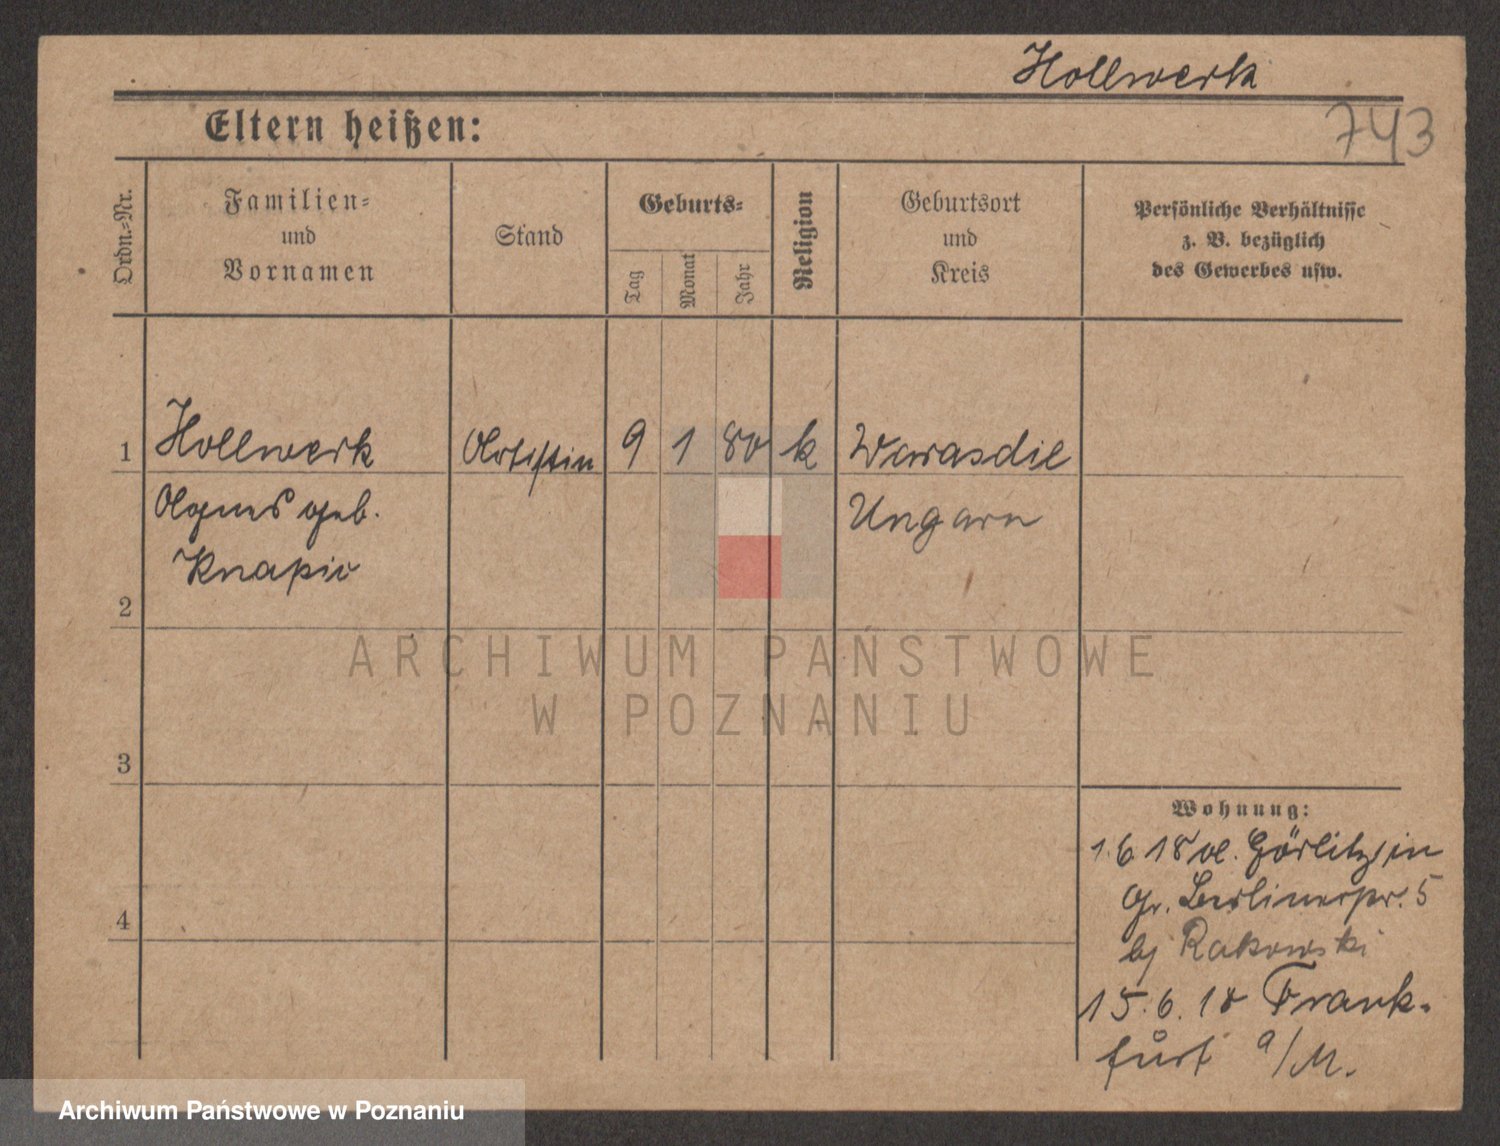 Hollwerk
743
Eltern heißen:
Ordn.-Nr.
Familien-
und
Vornamen
Stand
Geburts-
Tag
Monat
Jahr
Religion
Geburtsort
und
Kreis
Persönliche Verhältnisse
z. B. bezüglich
des Gewerbes usw.
1 Hollwerk Artistin 9 1 80 k Warasdil
Agnes geb. Ungarn
Knapic
2
ARCHIWUM PAŃSTWOWE
W POZNANIU
3
Wohnung:
1.6 18 vl. Görlitz, in
Gr. Berlinerstr. 5
bj Rakowski
4
15.6.18 Frank-
furt a/M.
Archiwum Państwowe w Poznaniu